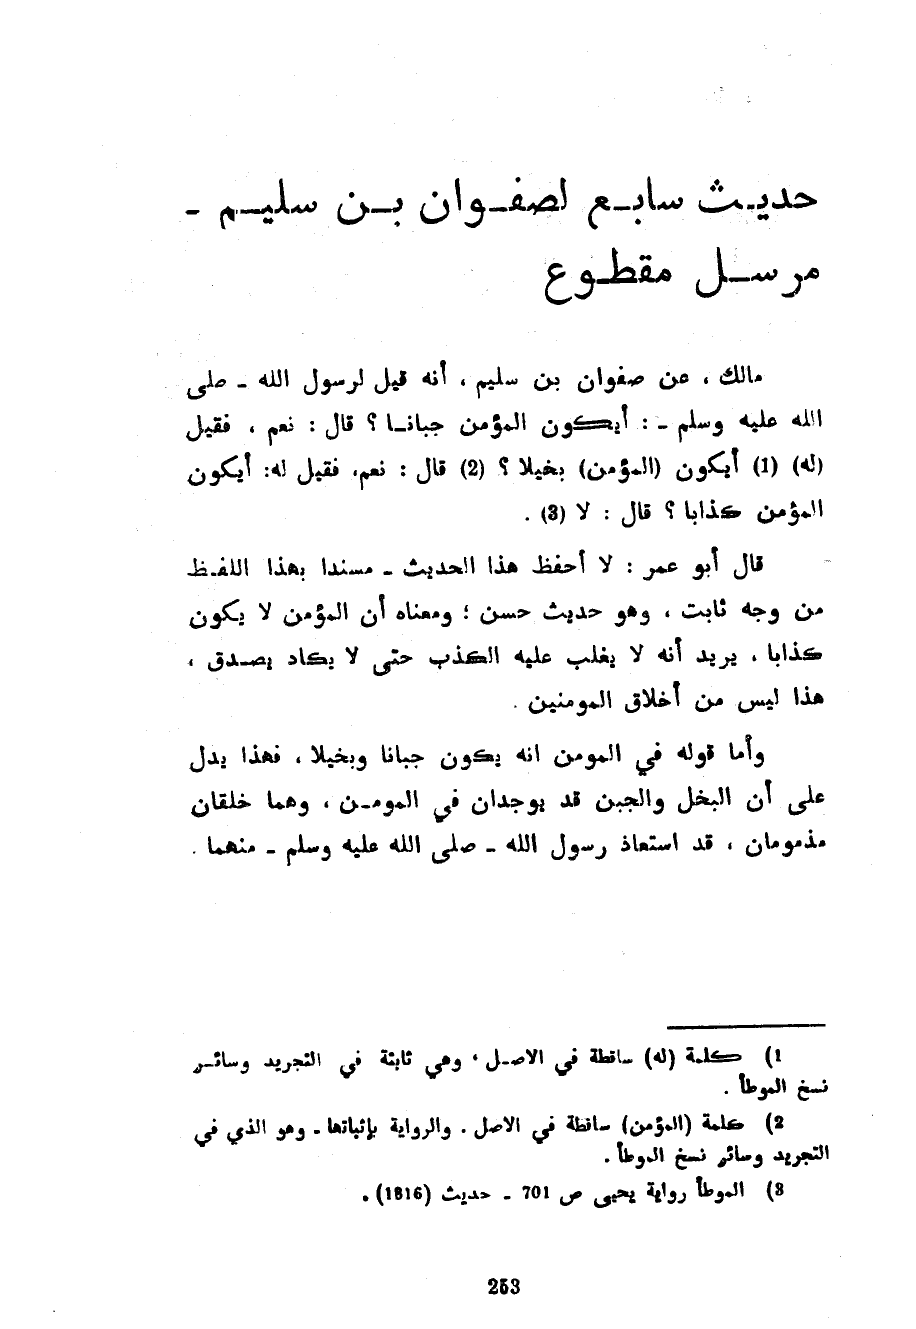 حديث سابع لصفوان بن سليم ـ
مرسل مقطوع
مالك ، عن صفوان بن سليم ، أنه قيل لرسول الله ـ صلى
الله عليه وسلم ـ : أيكون المؤمن جبانا ؟ قال : نعم ، فقيل
(له) (1) أيكون (المؤمن) بخيلا ؟ (2) قال : نعم، فقيل له: أيكون
المؤمن كذابا ؟ قال : لا (3) .
قال أبو عمر : لا أحفظ هذا الحديث ـ مسندا بهذا اللفظ
من وجه ثابت ، وهو حديث حسن ؛ ومعناه أن المؤمن لا يكون
كذابا ، يريد أنه لا يغلب عليه الكذب حتى لا يكاد يصدق ،
هذا ليس من أخلاق المومنين .
وأما قوله في المومن انه يكون جبانا وبخيلا ، فهذا يدل
على أن البخل والجبن قد يوجدان في المومن ، وهما خلقان
مذمومان ، قد استعاذ رسول الله ـ صلى الله عليه وسلم ـ منهما .
1) كلمة (له) ساقطة في الاصل ، وهي ثابتة في التجريد وسائر
نسخ الموطأ .
2) كلمة (المؤمن) ساقطة في الاصل . والرواية بإثباتها ـ وهو الذي في
التجريد وسائر نسخ الموطأ .
3) الموطأ رواية يحيى ص 701 ـ حديث (1816) .
253